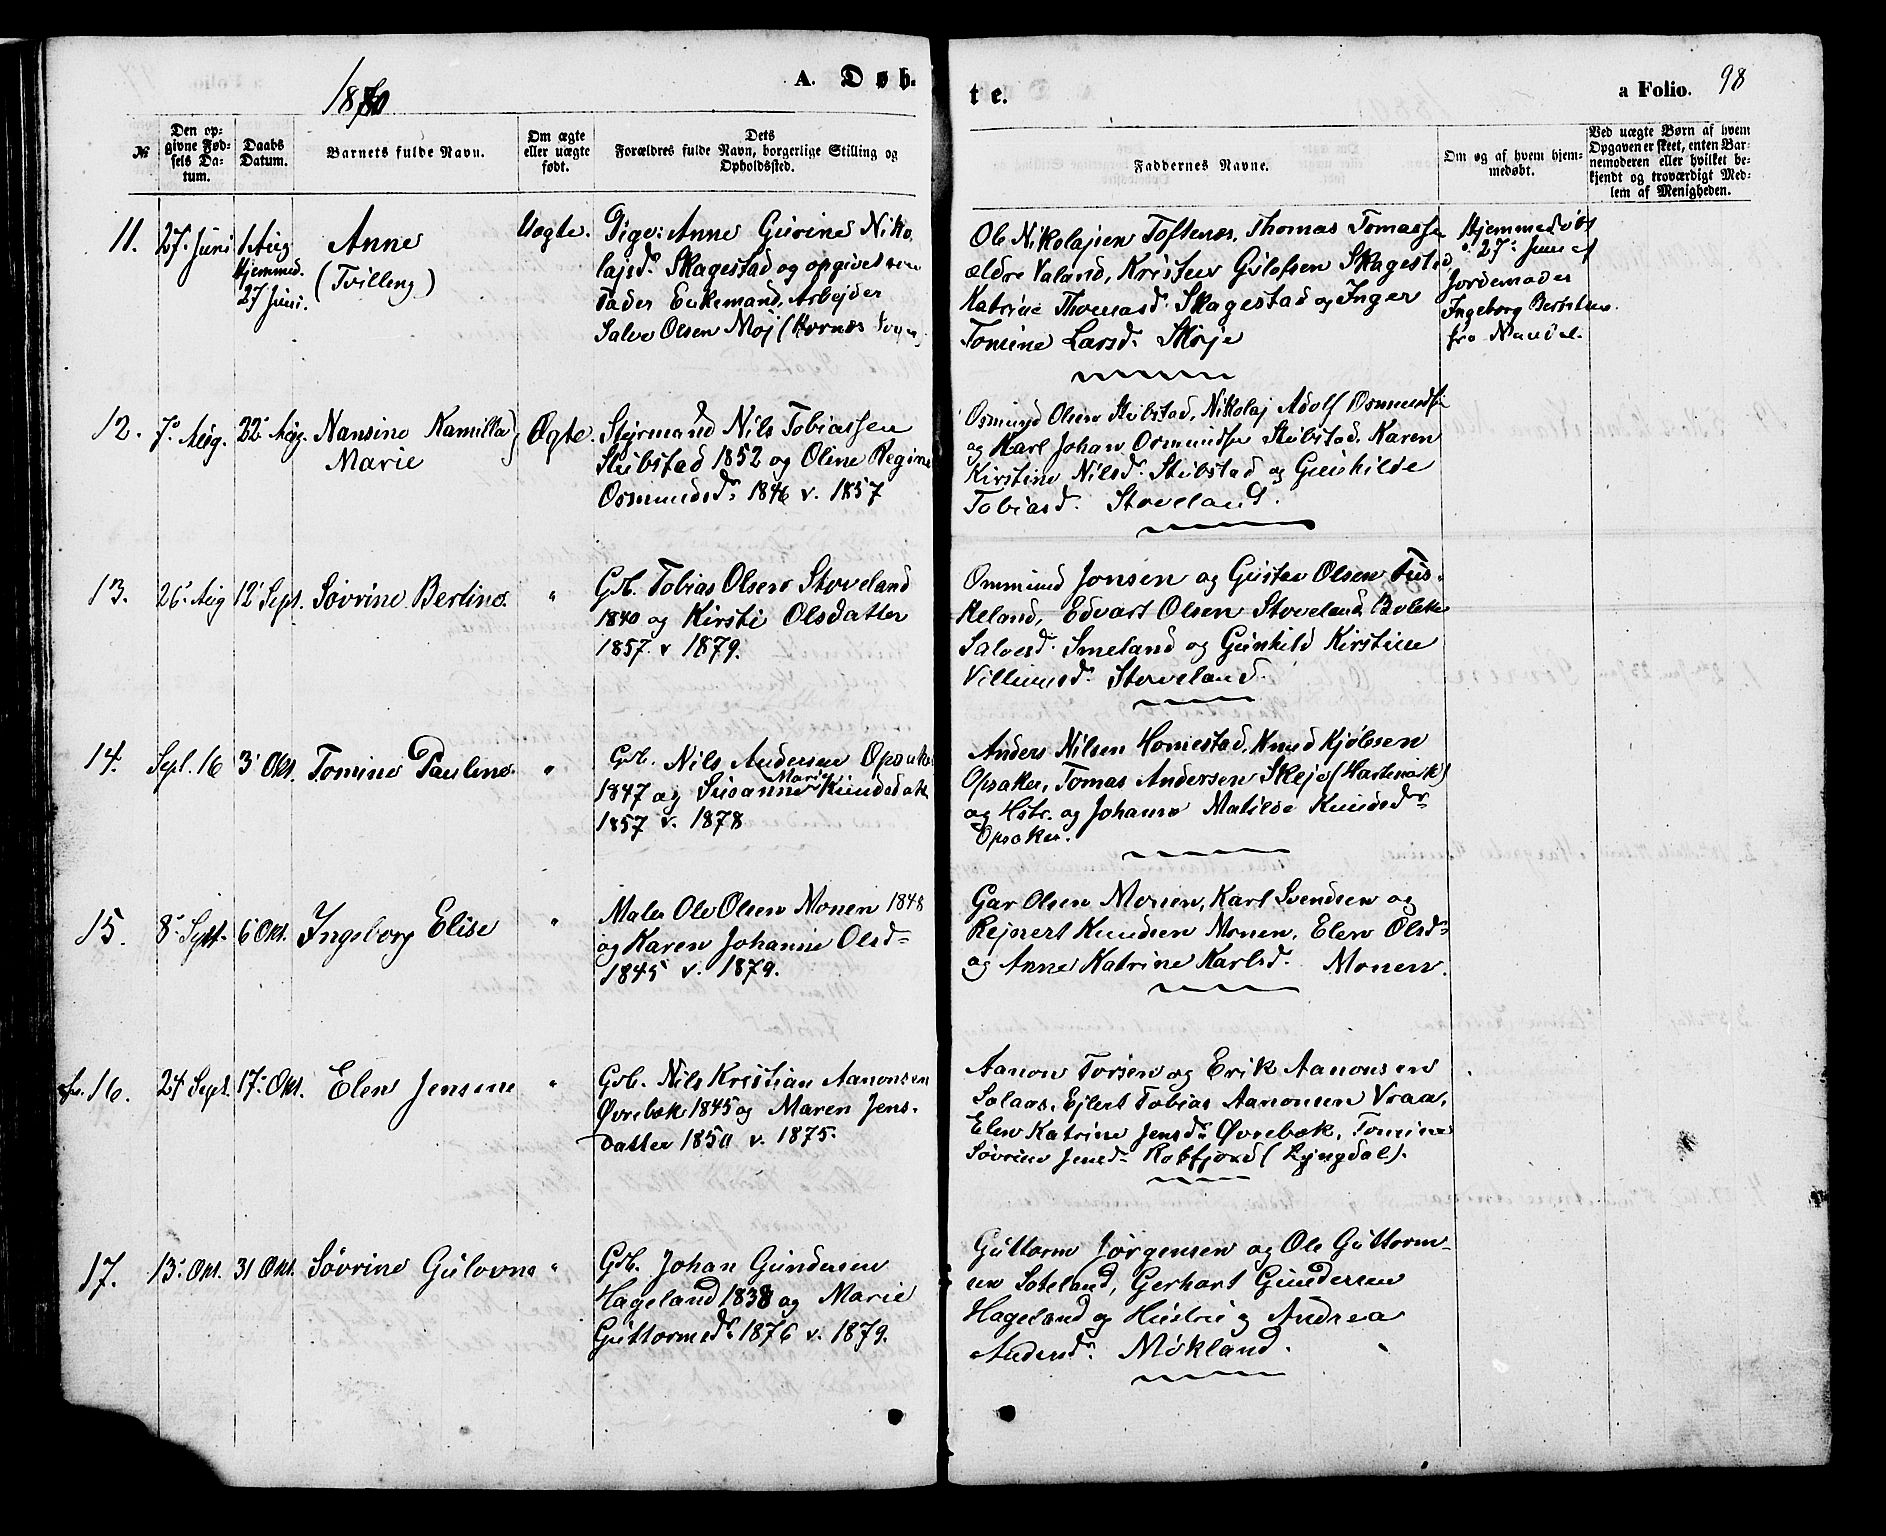 1880
A. Døb-
te.
a Folio. 98
№
Den op-
givne Fød-
sels Da-
tum.
Daabs
Datum.
Barnets fulde Navn.
Om ægte
eller uægte
født.
Dets
Forældres fulde Navn, borgerlige Stilling og
Opholdssted.
Faddernes Navne.
Om og af hvem hjem-
medøbt.
Ved uægte Børn af hvem
Opgaven er skeet, enten Bar-
nemoderen eller hvilket be-
kjendt og troværdigt Med-
lem af Menigheden.
11. 27. Juni 1 Aug
Hjemmed.
27 Juni.
Anne
(Tvilling)
Uægte.
Pige: Anne Gurine Niko-
lajsd. Skagestad og opgivet som
Fader Enkemand, Arbejder
Salve Olsen Moj (Hornæs Sogn)
Ole Nikolajsen Toftenæs, Thomas Tomassen
ældre Valand, Kristen Gulofsen Skagestad
Katrine Thomasd. Skagestad og Inger
Tomine Larsd. Skoje
Hjemmedøbt
27. Juni af
Jordemoder
Ingeborg Bertilsen
fra Mandal.
12. 7. Aug. 22. Aug. Nansine Kamilla
Marie
Ægte.
Styrmand Nils Tobiassen
Stubstad 1852 og Oline Regine
Osmundsd. 1846 v. 1857
Osmund Olsen Stubstad, Nikolaj Adolf Osmundsen
og Karl Johan Osmundsen Stubstad, Karen
Kirstine Nilsd. Stubstad og Gunhilde
Tobiasd. Stoveland.
13. 26. Aug 12 Sept. Sövrine Bertine. "
Gvb. Tobias Olsen Stoveland
1840 og Kirsti Olsdatter
1857. v 1879.
Ommund Jonsen og Gustav Olsen Fus-
keland, Edvart Olsen Stoveland, Bolette
Salvesd. Smeland og Gunhild Kirstine
Villumsd. Stoveland.
14. Sept. 16 3. Okt. Tomine Pauline. "
Gvb. Nils Andersen Opsaker
1847 og Susanne Marie Knudsdatter
1857 v. 1878
Anders Nilsen Homestad, Knud Kjölsen
Opsaker, Tomas Andersen Skeje (Hartmark)
og Hstr. og Johanne Matilde Knudsdr
Opsaker.
15. 8. Sept. 6 Okt. Ingeborg Elise "
Maler Ole Olsen Monen 1848
og Karen Johanne Olsd.
1845 v. 1879.
Gar Olsen Monen, Karl Svendsen og
Rejnert Knudsen Monen, Elen Olsd.
og Anne Katrine Karlsd. Monen.
16. 24 Sept. 17. Okt. Elen Jensine "
Gvb. Nils Kristian Aanonsen
Øvrebøk 1845 og Maren Jens-
datter 1850 v. 1875.
Aanon Torsen og Erik Aanonsen
Solaas, Ejlert Tobias Aanonsen Vraa,
Elen Katrine Jensd. Øvrebøk, Tomine
Sövrine Jensd. Rosfjord (Lyngdal).
17. 13. Okt. 31 Okt. Sövrine Gulovne "
Gvb. Johan Gundersen
Hageland 1838 og Marie
Guttormsd. 1876 v. 1879.
Guttorm Jörgensen og Ole Guttorm-
sen Soteland, Gerhart Gundersen
Hageland og Hustru og Andrea
Andersd. Mökland.